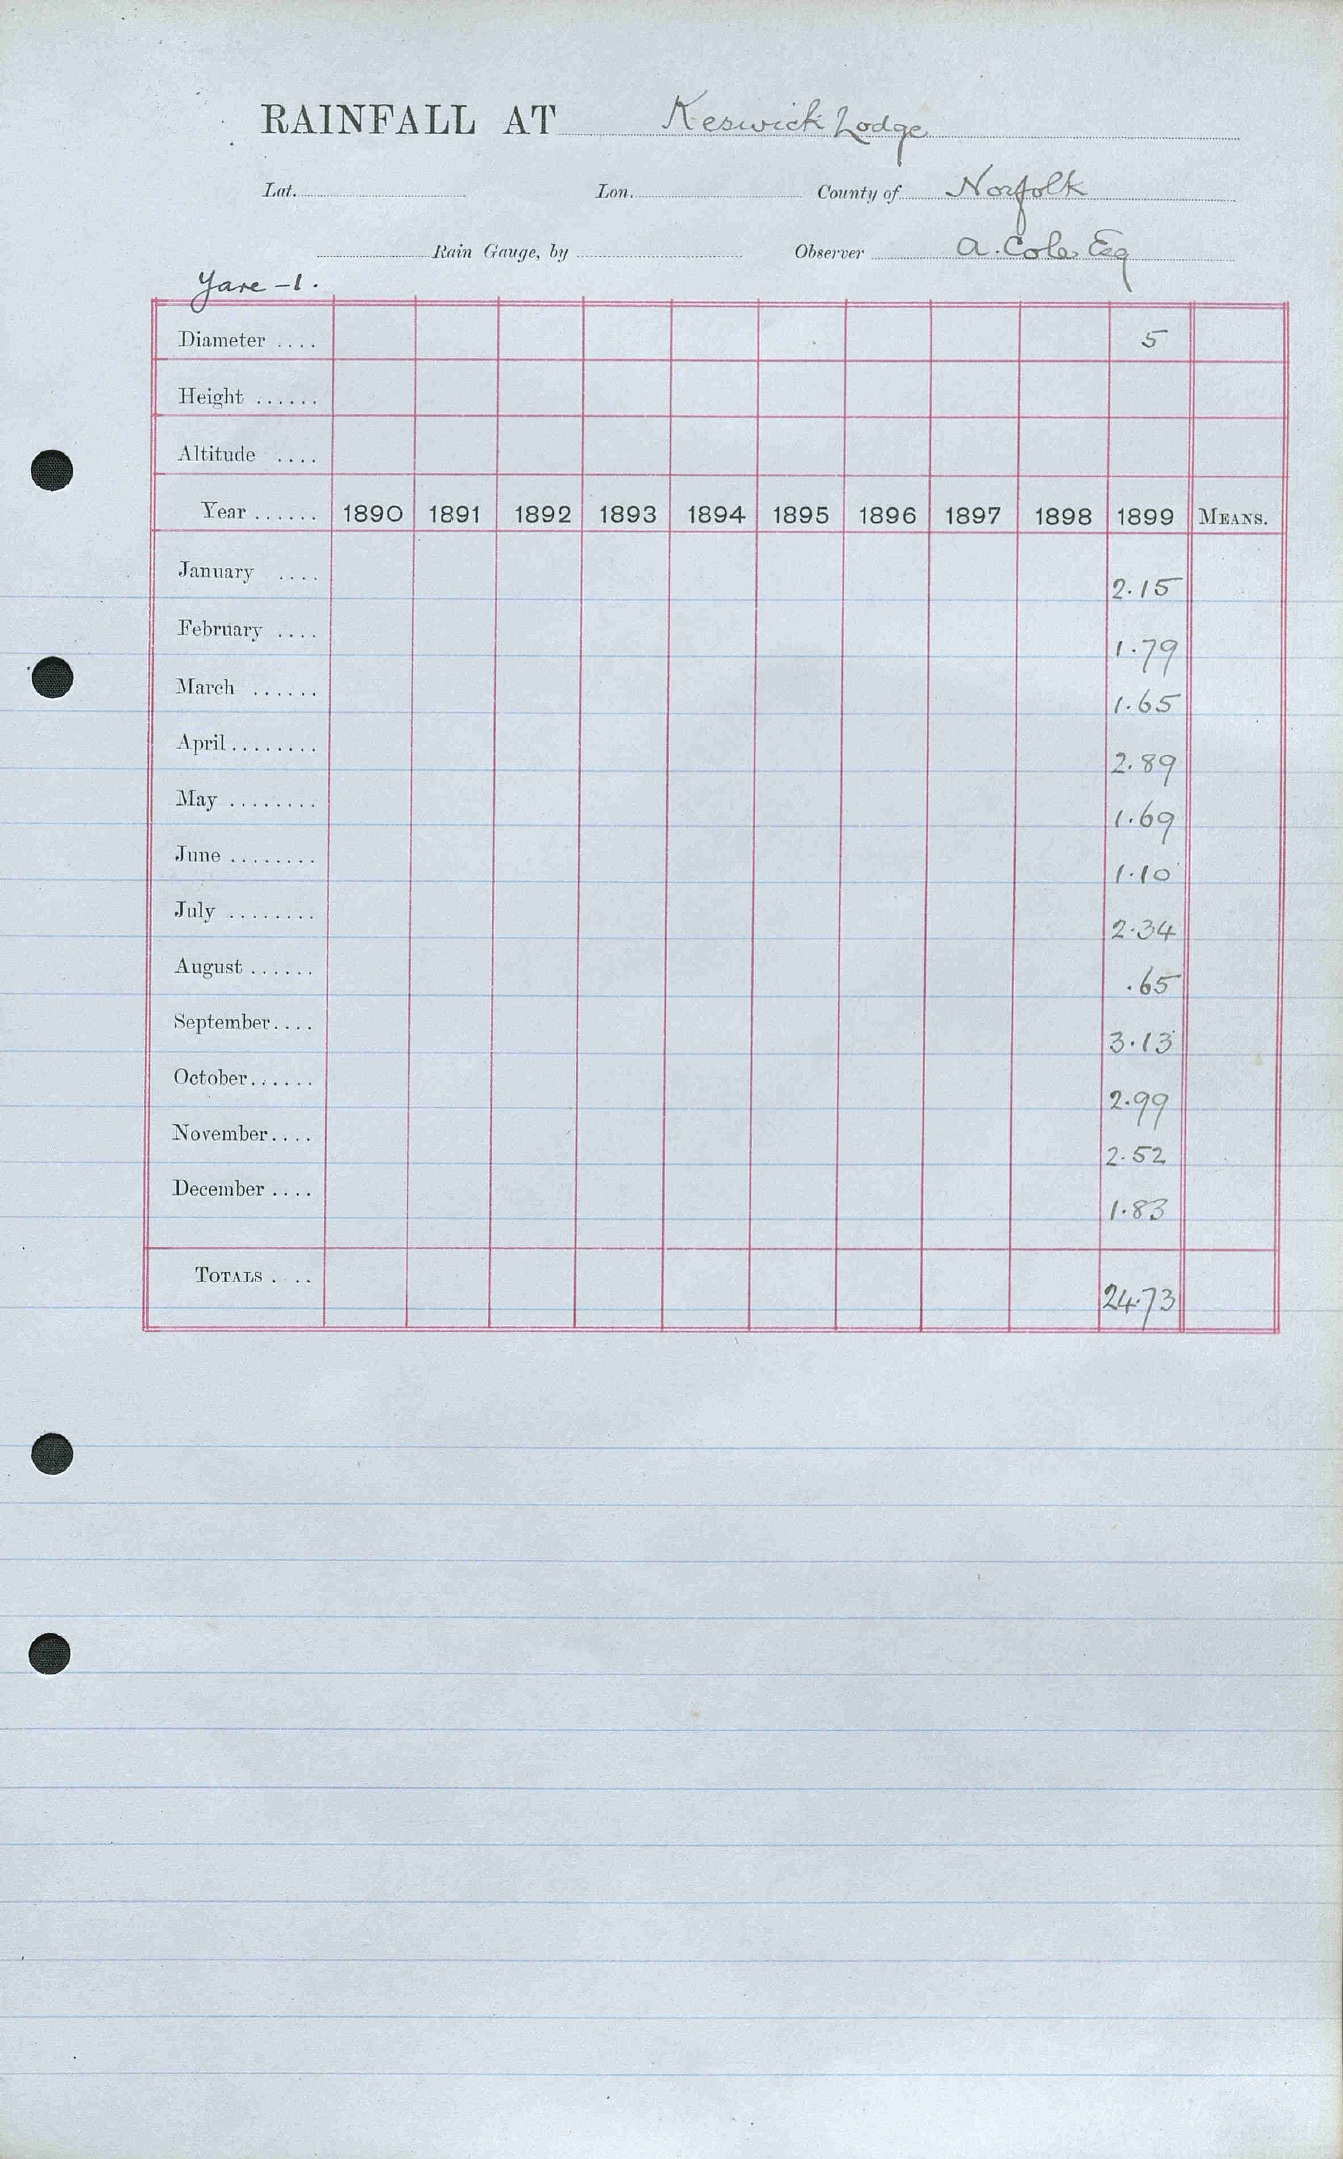 RAINFALL AT Keswick Lodge
Lat. Lon. County of Norfolk
Rain Gauge, by Observer A. Cole Esq
Yare - 1.
Diameter .... 5
Height ......
Altitude ....
Year ...... 1890 1891 1892 1893 1894 1895 1896 1897 1898 1899 MEANS.
January .... 2.15
February .... 1.79
March ...... 1.65
April ........ 2.89
May ........ 1.69
June ........ 1.10
July ........ 2.34
August ...... .65
September .... 3.13
October ...... 2.99
November .... 2.52
December .... 1.83
TOTALS . .. 24.73